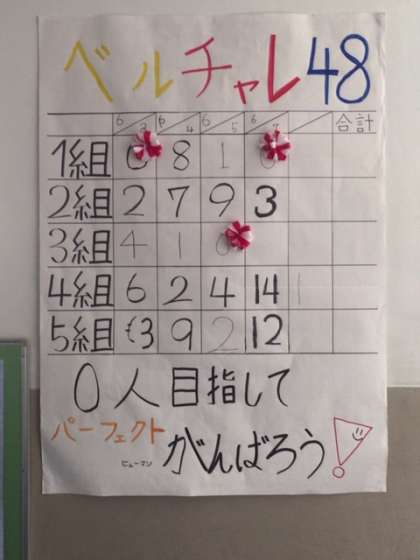 ベルチャレ48
6/3 6/4 6/5 6/7 合計
1組 0 8 1 0
2組 2 7 9 3
3組 4 1 0
4組 6 2 4 14 1
5組 13 9 2 12
0人目指して
パーフェクト
ヒューマン がんばろう!